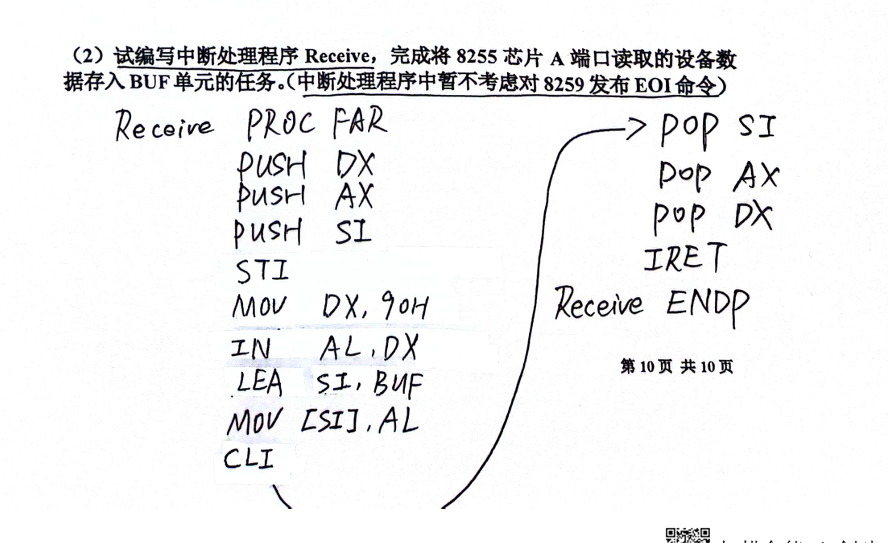 （2）试编写中断处理程序 Receive，完成将 8255 芯片 A 端口读取的设备数
据存入 BUF 单元的任务。（中断处理程序中暂不考虑对 8259 发布 EOI 命令）
Receive PROC FAR
PUSH DX
PUSH AX
PUSH SI
STI
MOV DX, 90H
IN AL, DX
LEA SI, BUF
MOV [SI], AL
CLI
POP SI
POP AX
POP DX
IRET
Receive ENDP
第 10 页 共 10 页